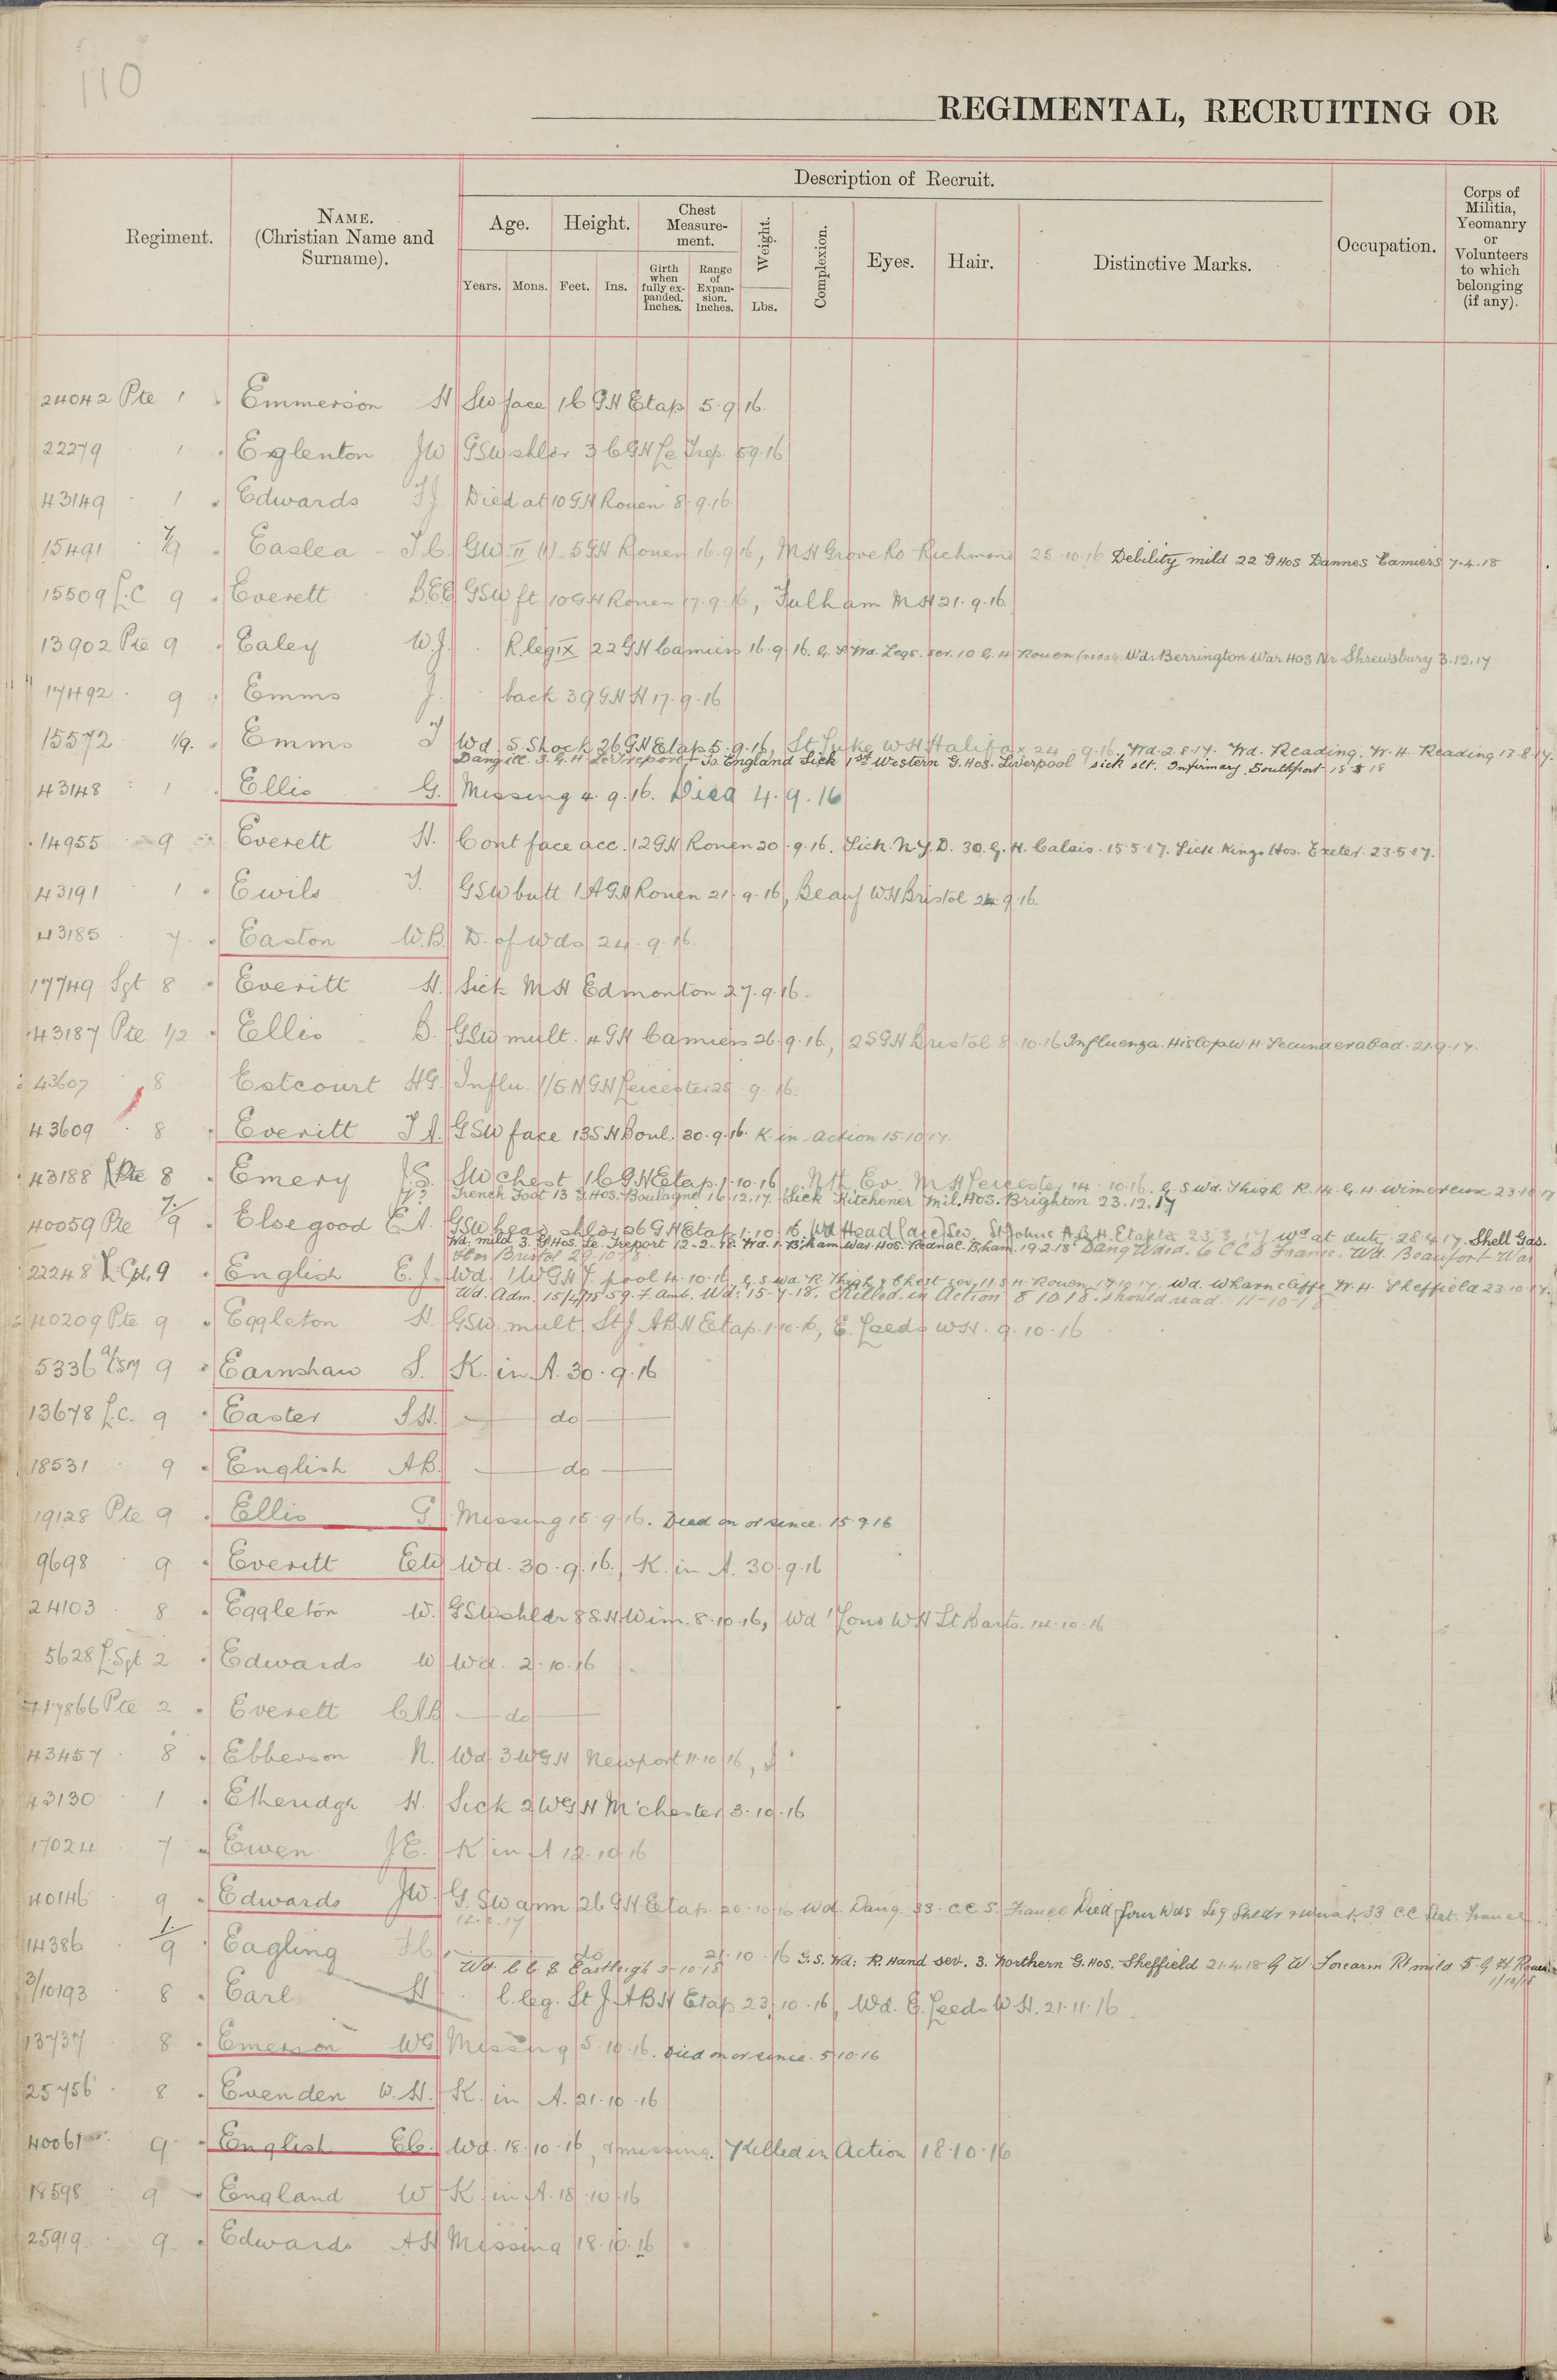 110
REGIMENTAL, RECRUITING OR
Description of Recruit.
Regiment.
NAME.
(Christian Name and
Surname).
Age.
Height.
Chest
Measure-
ment.
Weight.
Complexion.
Eyes.
Hair.
Distinctive Marks.
Occupation.
Corps of
Militia,
Yeomanry
or
Volunteers
to which
belonging
(if any).
Years.
Mons.
Feet.
Ins.
Girth
when
fully ex-
panded.
Inches.
Range
of
Expan-
sion.
Inches.
Lbs.
24042 Pte 1 Emmerson H SW face 16 GH Etap 5.9.16.
22279 1 Eglenton JW GSW shldr 3 CGH Le Trep. 5.9.16
43149 1 Edwards Died at 10 GH Rouen 8.9.16
15491 7/9 Easlea 5GH Rouen 16.9.16, MH Grove Rd Richmond 25.10.16 Debility mild 22 G Hos Dannes Camiers 7.4.18
15509 L.C 9 Everett GSW ft 10 GH Rouen 17.9.16, Fulham MH 21.9.16
13902 Pte 9 Ealey W.J. R leg IX 22 GH Camiers 16.9.16. Legs. sev. 10 G.H Rouen Wd. Berrington War Hos Nr Shrewsbury 3.12.17
17492 9 Emms J. back 39 GH H 17.9.16
15572 1/9. Emms Wd. S. Shock 26 GH Etap 5.9.16, St Luke WH Halifax 24.9.16. Wd. 2.8.17. Wd. Reading. W.H. Reading 13.8.17.
Dang ill 3. G.H. Le Treport To England Sick 1st Western G. Hos. Liverpool sick slt. Infirmary. Southport 18 5 18
43148 1 Ellis G. Missing 4.9.16. Died 4.9.16
14955 9 Everett H. Cont face acc. 12 GH Rouen 20.9.16. Sick. N.Y.D. 30. G.H. Calais. 15.5.17. Sick. Kings Hos. Exeter. 23.5.17.
43191 1 Ewils GSW butt 1 A GH Rouen 21.9.16, Beauf WH Bristol 24.9.16.
43185 7 Easton W.B D. of Wds 24.9.16.
17749 Sgt 8 Everitt H. Sick MH Edmonton 27.9.16.
43187 Pte 1/2 Ellis B. GSW mult. 4 GH Camiers 26.9.16, 2SGH Bristol 8.10.16 Influenza. Hislop W.H. Secunderabad. 21.9.17.
43607 8 Estcourt HG. Influ. 1/5 N GH Leicester 25 9.16.
43609 8 Everitt GSW face 13 SH Boul. 30.9.16. K. in Action 15.10.17.
43188 Pte 8 Emery J.S. SW chest 16 GH Etap. 1.10.16, Nth Ev. MH Leicester 14.10.16. G S Wd. Thigh R. 14. G.H. Wimereux 23.10.17
Trench Foot 13 G. Hos. Boulogne 16.12.17 Sick Kitchener Mil. Hos. Brighton 23.12.17
40059 Pte 7/9 Elsegood E A. GSW head, shldr 26 GH Etap 1.10.16. Wd Head (acc) Sev. St Johns A.B.H. Etaples 23.3.17 Wd at duty 28.4.17. Shell Gas.
Wd. mild 3. G Hos. Le Treport 12-2-18. Wd. 1. B'ham War Hos. Rednal. Bham. 19 2.18 Dang Wded. 6 CCS France. Wd. Beaufort War
Hos Bristol 29/10/18
22248 Cpl. 9 English E.J. Wd. 1 WGH L'pool 4.10.16. G S Wd. R. Thigh & Chest sev. 11. S.H. Rouen 17 10 17. Wd. Wharncliffe W.H. Sheffield 23.10.17.
Wd. Adm. 15/4/18 59. F. Amb. Wd. 15-4-18. Killed in Action 8 10 18. should read. 11-10-18
40209 Pte 9 Eggleton H. GSW mult St J ABH Etap. 1.10.16, E. Leeds WH. 9.10.16
5336 a/CSM 9 Earnshaw S. K. in A. 30.9.16
13678 L.C. 9 Easter do
18531 9 English AB. do
19128 Pte 9 Ellis G. Missing 15.9.16. Died on or since. 15 9 16
9698 9 Everitt EW Wd. 30.9.16., K. in A. 30.9.16
24103 8 Eggleton W. GSW shldr 8 S.H Wim. 8.10.16, Wd 1 Lond WH St Barts. 14.10.16
5628 L.Sgt 2 Edwards W Wd. 2.10.16
17866 Pte 2 Everett CAB do
43457 8 Ebberson N. Wd. 3 WGH Newport 11.10.16,
43130 1 Etheridge H. Sick 2 WGH M'chester 3.10.16
17024 7 Ewen J E. K in A 12.10.16
40146 9 Edwards JW. G. SW arm 26 GH Etap. 20.10.16 Wd Dang. 33. C C S. France Died from Wds Leg Shldr 33 C.C. Stat. France
12.2.17
14386 1/9 Eagling do 21.10.16 G.S. Wd: R. Hand sev. 3. Northern G. Hos. Sheffield 21.4.18 G W Forearm Rt mild 5 G H Rouen
Wd. C C S Eastleigh 3-10-18 1/10/18
3/10193 8 Earl H l. leg. St J. ABH Etap 23.10.16, Wd. E. Leeds W.H. 21.11.16.
13737 8 Emerson WG Missing 5.10.16. Died on or since. 5.10.16
25756 8 Evenden W.H. K. in A. 21.10.16
40061 9 English EC. Wd. 18.10.16, & missing. Killed in Action 18.10.16
18598 9 England W K. in A. 18.10.16
25919 9 Edwards AH Missing 18.10.16